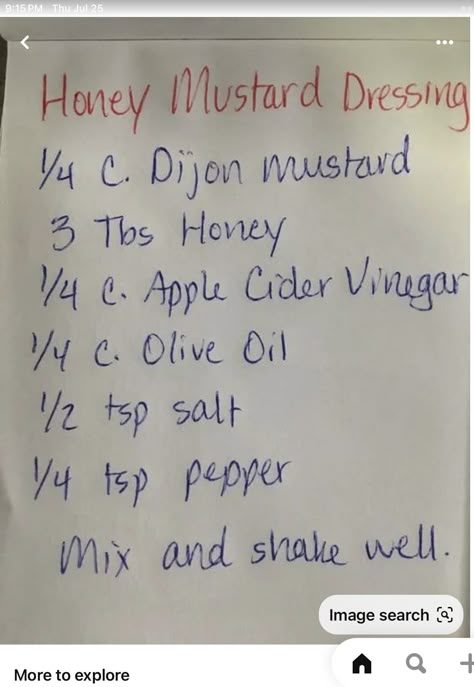 9:15 PM Thu Jul 25
Honey Mustard Dressing
1/4 c. Dijon mustard
3 Tbs Honey
1/4 c. Apple Cider Vinegar
1/4 c. Olive Oil
1/2 tsp salt
1/4 tsp pepper
Mix and shake well.
Image search
More to explore